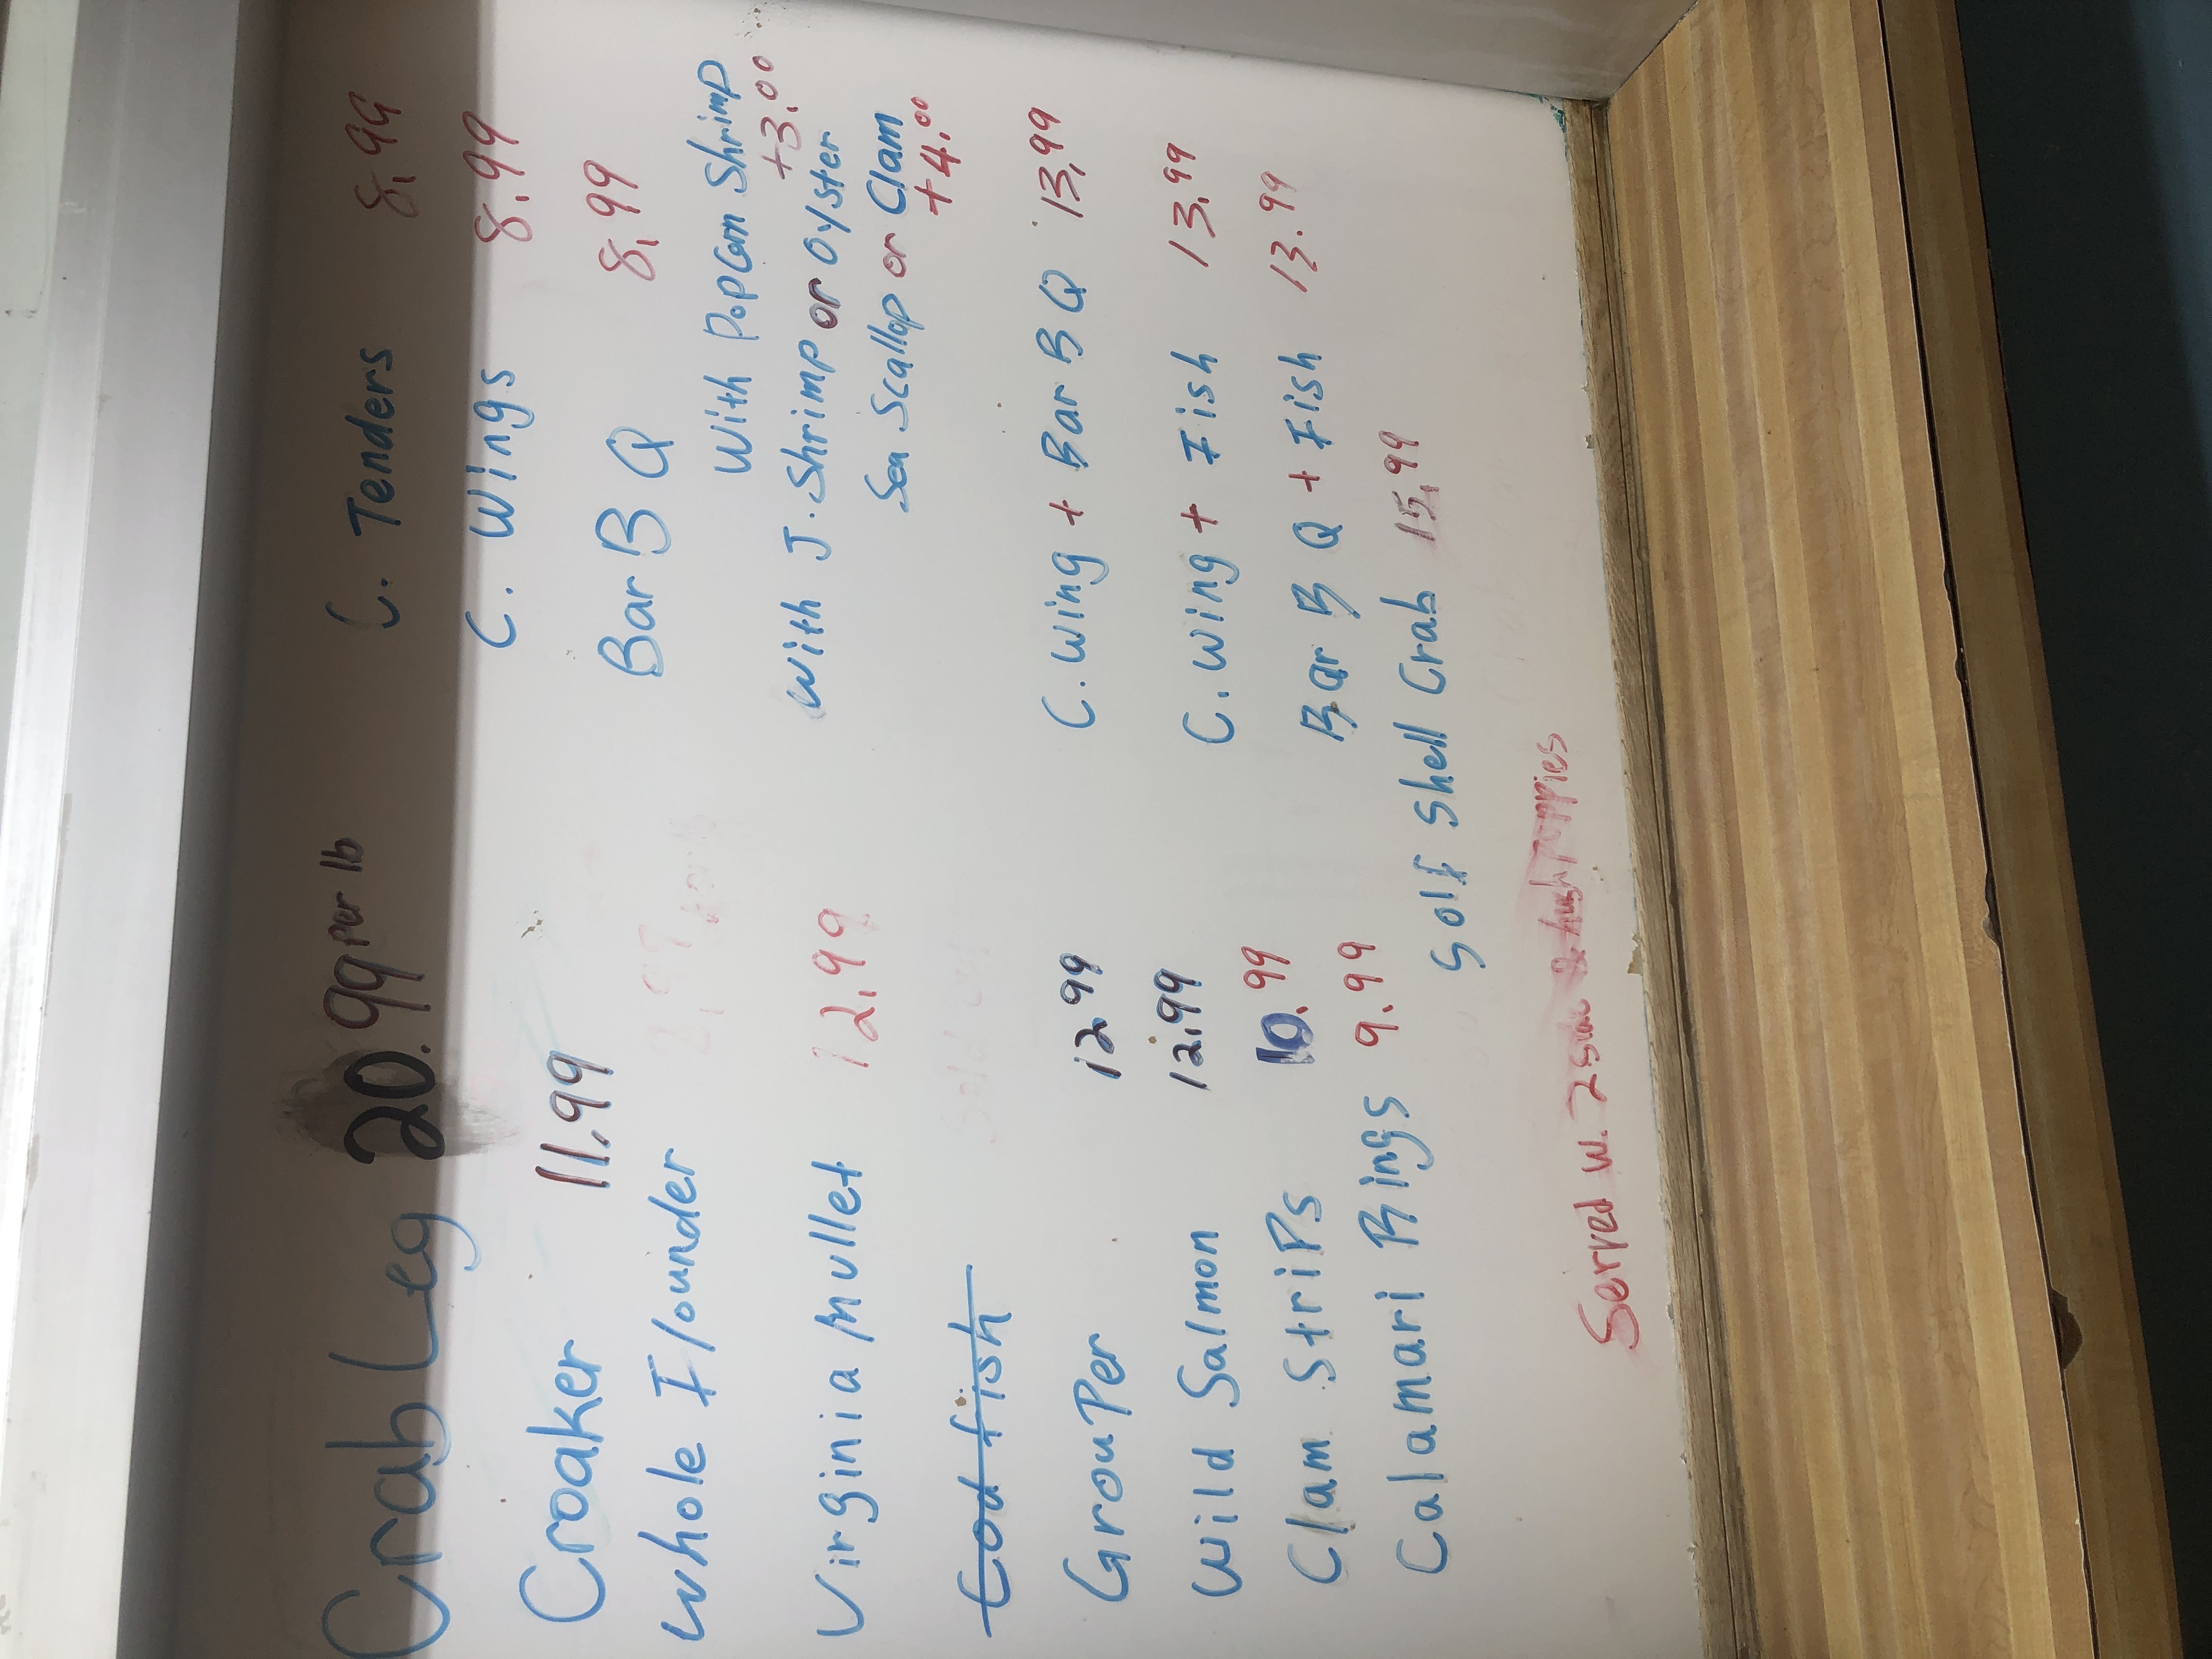 Crab Leg 20.99 per lb
Croaker 11.99
Whole Flounder
Virginia Mullet 12.99
Cod fish
GrouPer 12.99
Wild Salmon 12.99
Clam StriPs 10.99
Calamari Rings 9.99
C. Tenders 8.99
C. Wings 8.99
Bar B Q 8.99
With PoPcorn Shrimp
+3.00
With J. Shrimp or Oyster
Sea Scallop or Clam
+4.00
C. Wing + Bar B Q 13.99
C. Wing + Fish 13.99
Bar B Q + Fish 13.99
Solf Shell Crab 15.99
Served W. 2 Side & hush Puppies